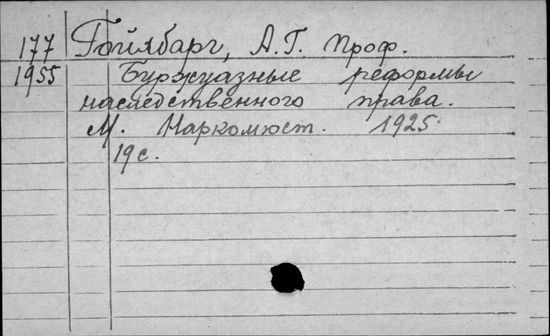 177 Гойхбарг, А.Г. проф.
1955 Буржуазные реформы
наследственного права.
М. Наркомюст. 1925.
19 с.